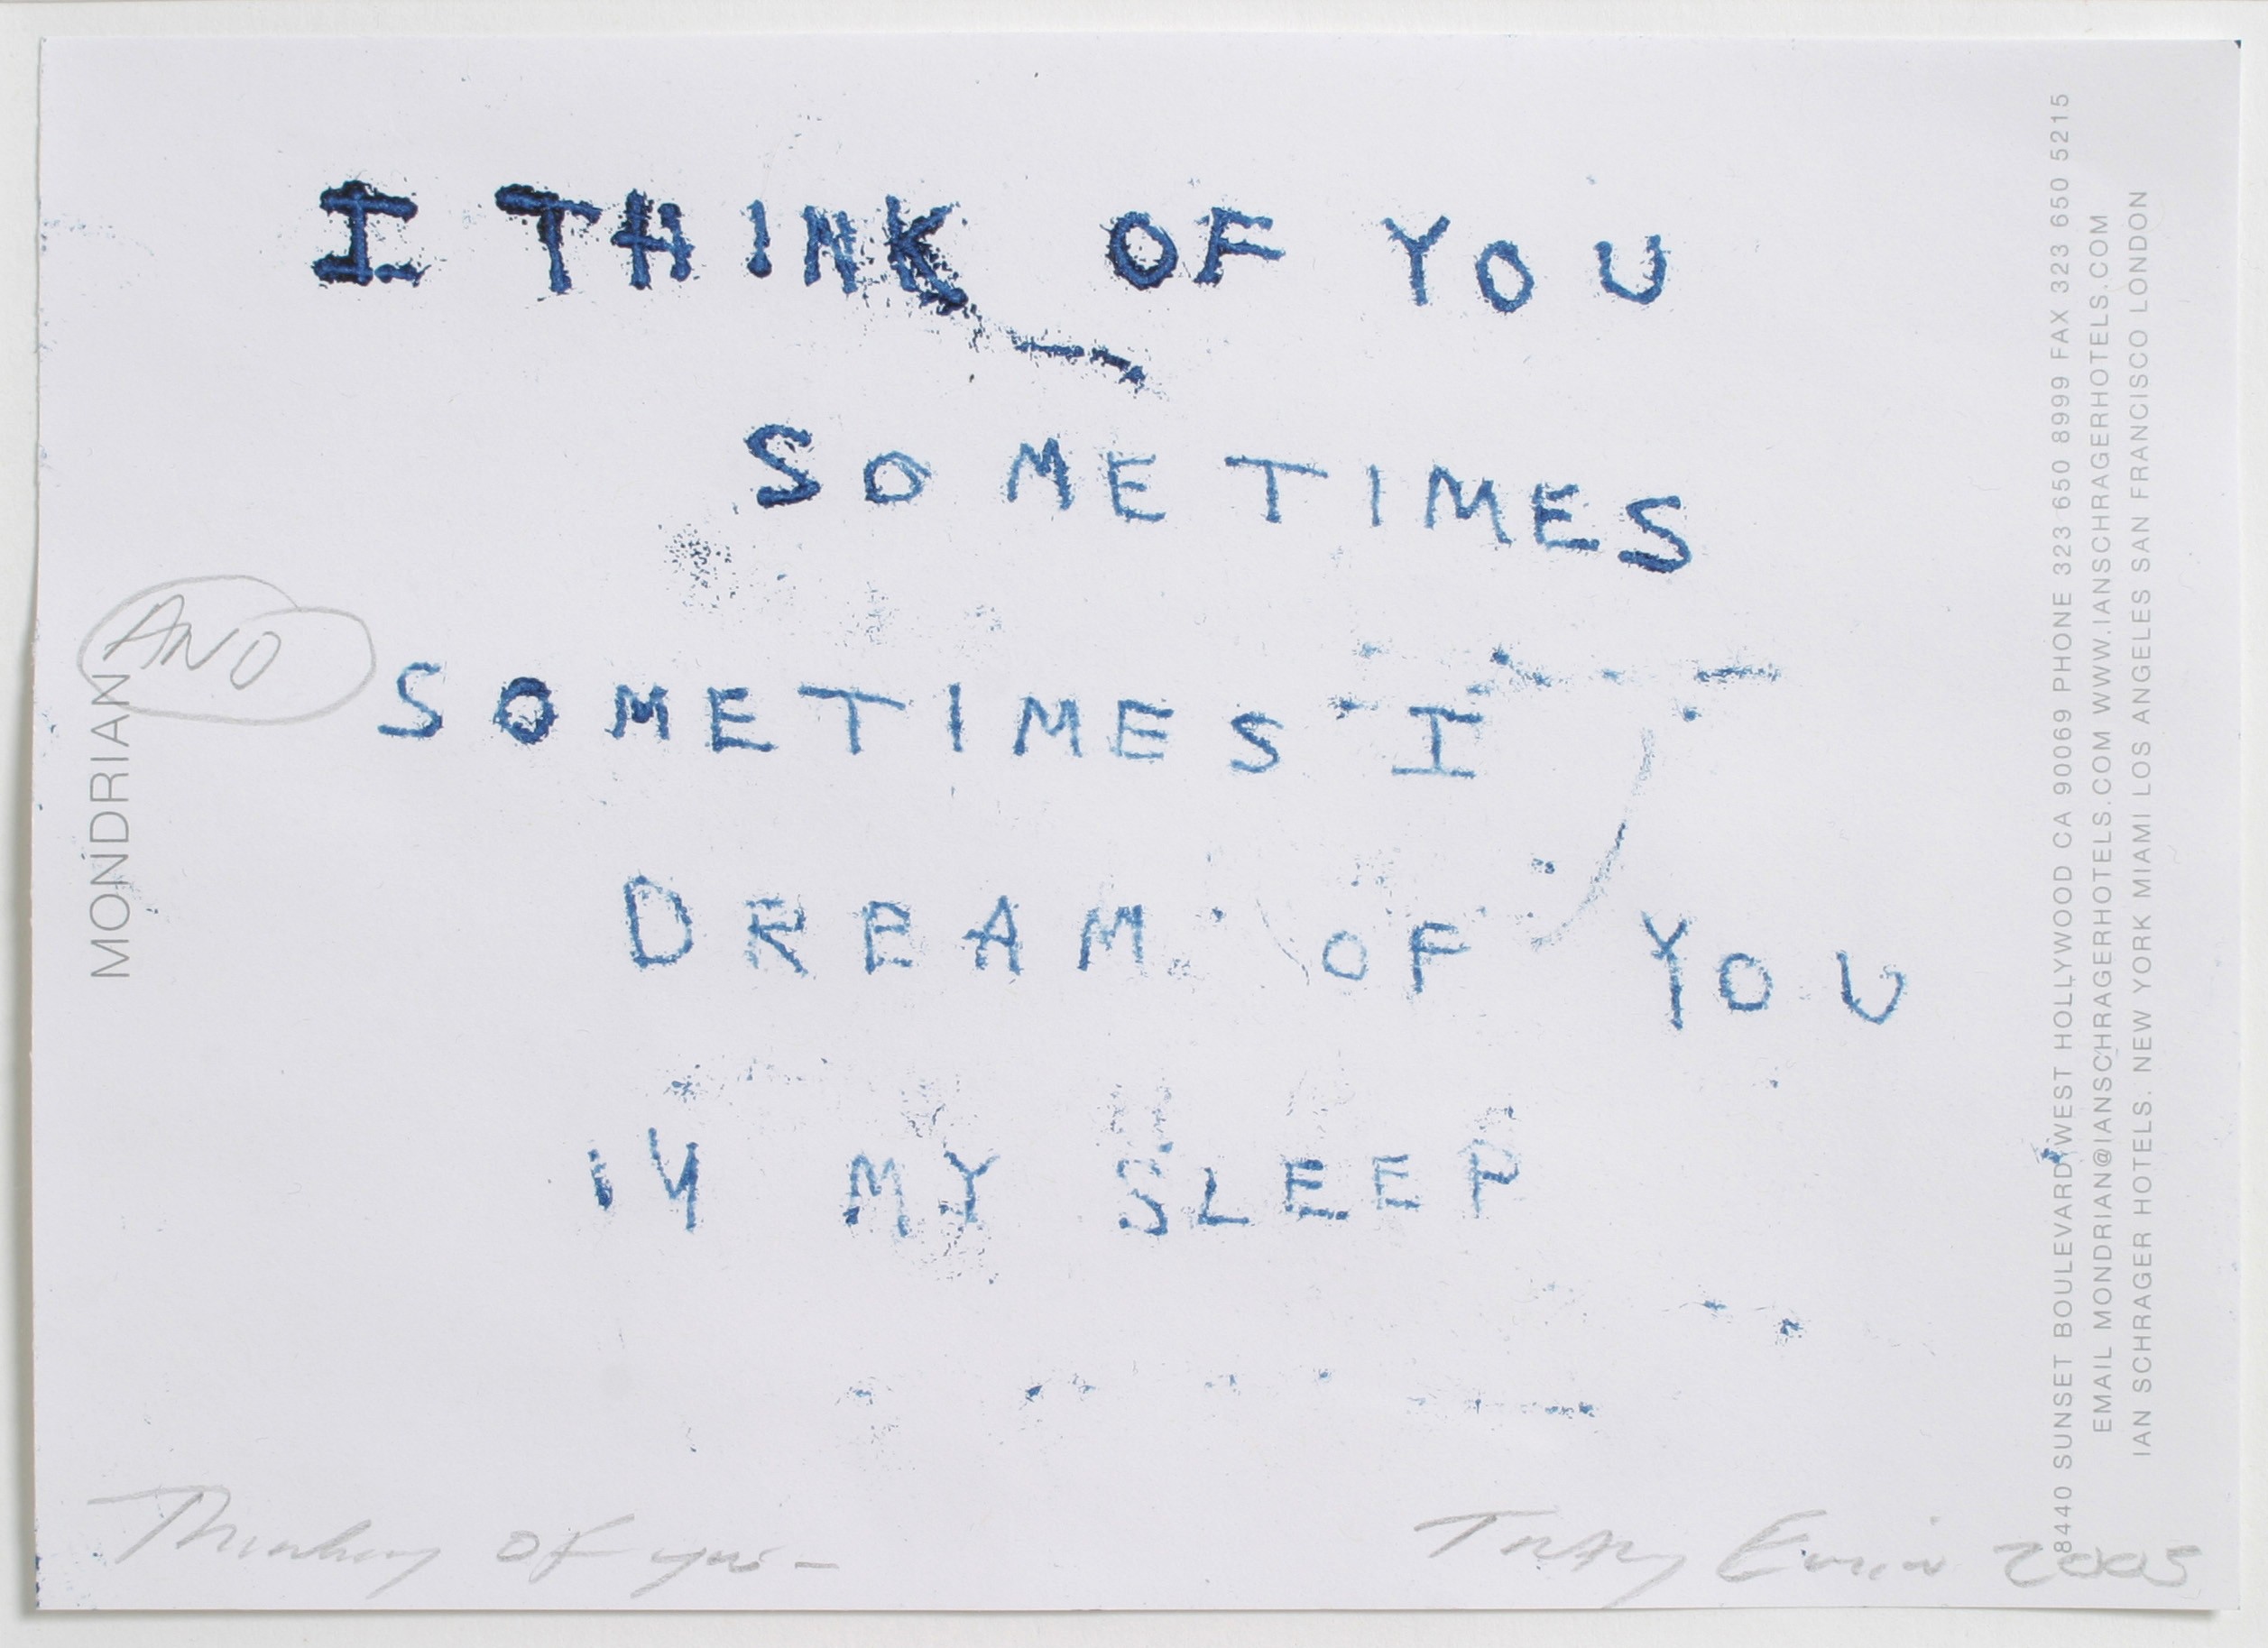 I THINK OF YOU
SOMETIMES
AND
SOMETIMES I
DREAM OF YOU
IN MY SLEEP
Thinking of you –
Tracey Emin 2005
MONDRIAN
8440 SUNSET BOULEVARD WEST HOLLYWOOD CA 90069 PHONE 323 650 8999 FAX 323 650 5215
EMAIL MONDRIAN@IANSCHRAGERHOTELS.COM WWW.IANSCHRAGERHOTELS.COM
IAN SCHRAGER HOTELS. NEW YORK MIAMI LOS ANGELES SAN FRANCISCO LONDON